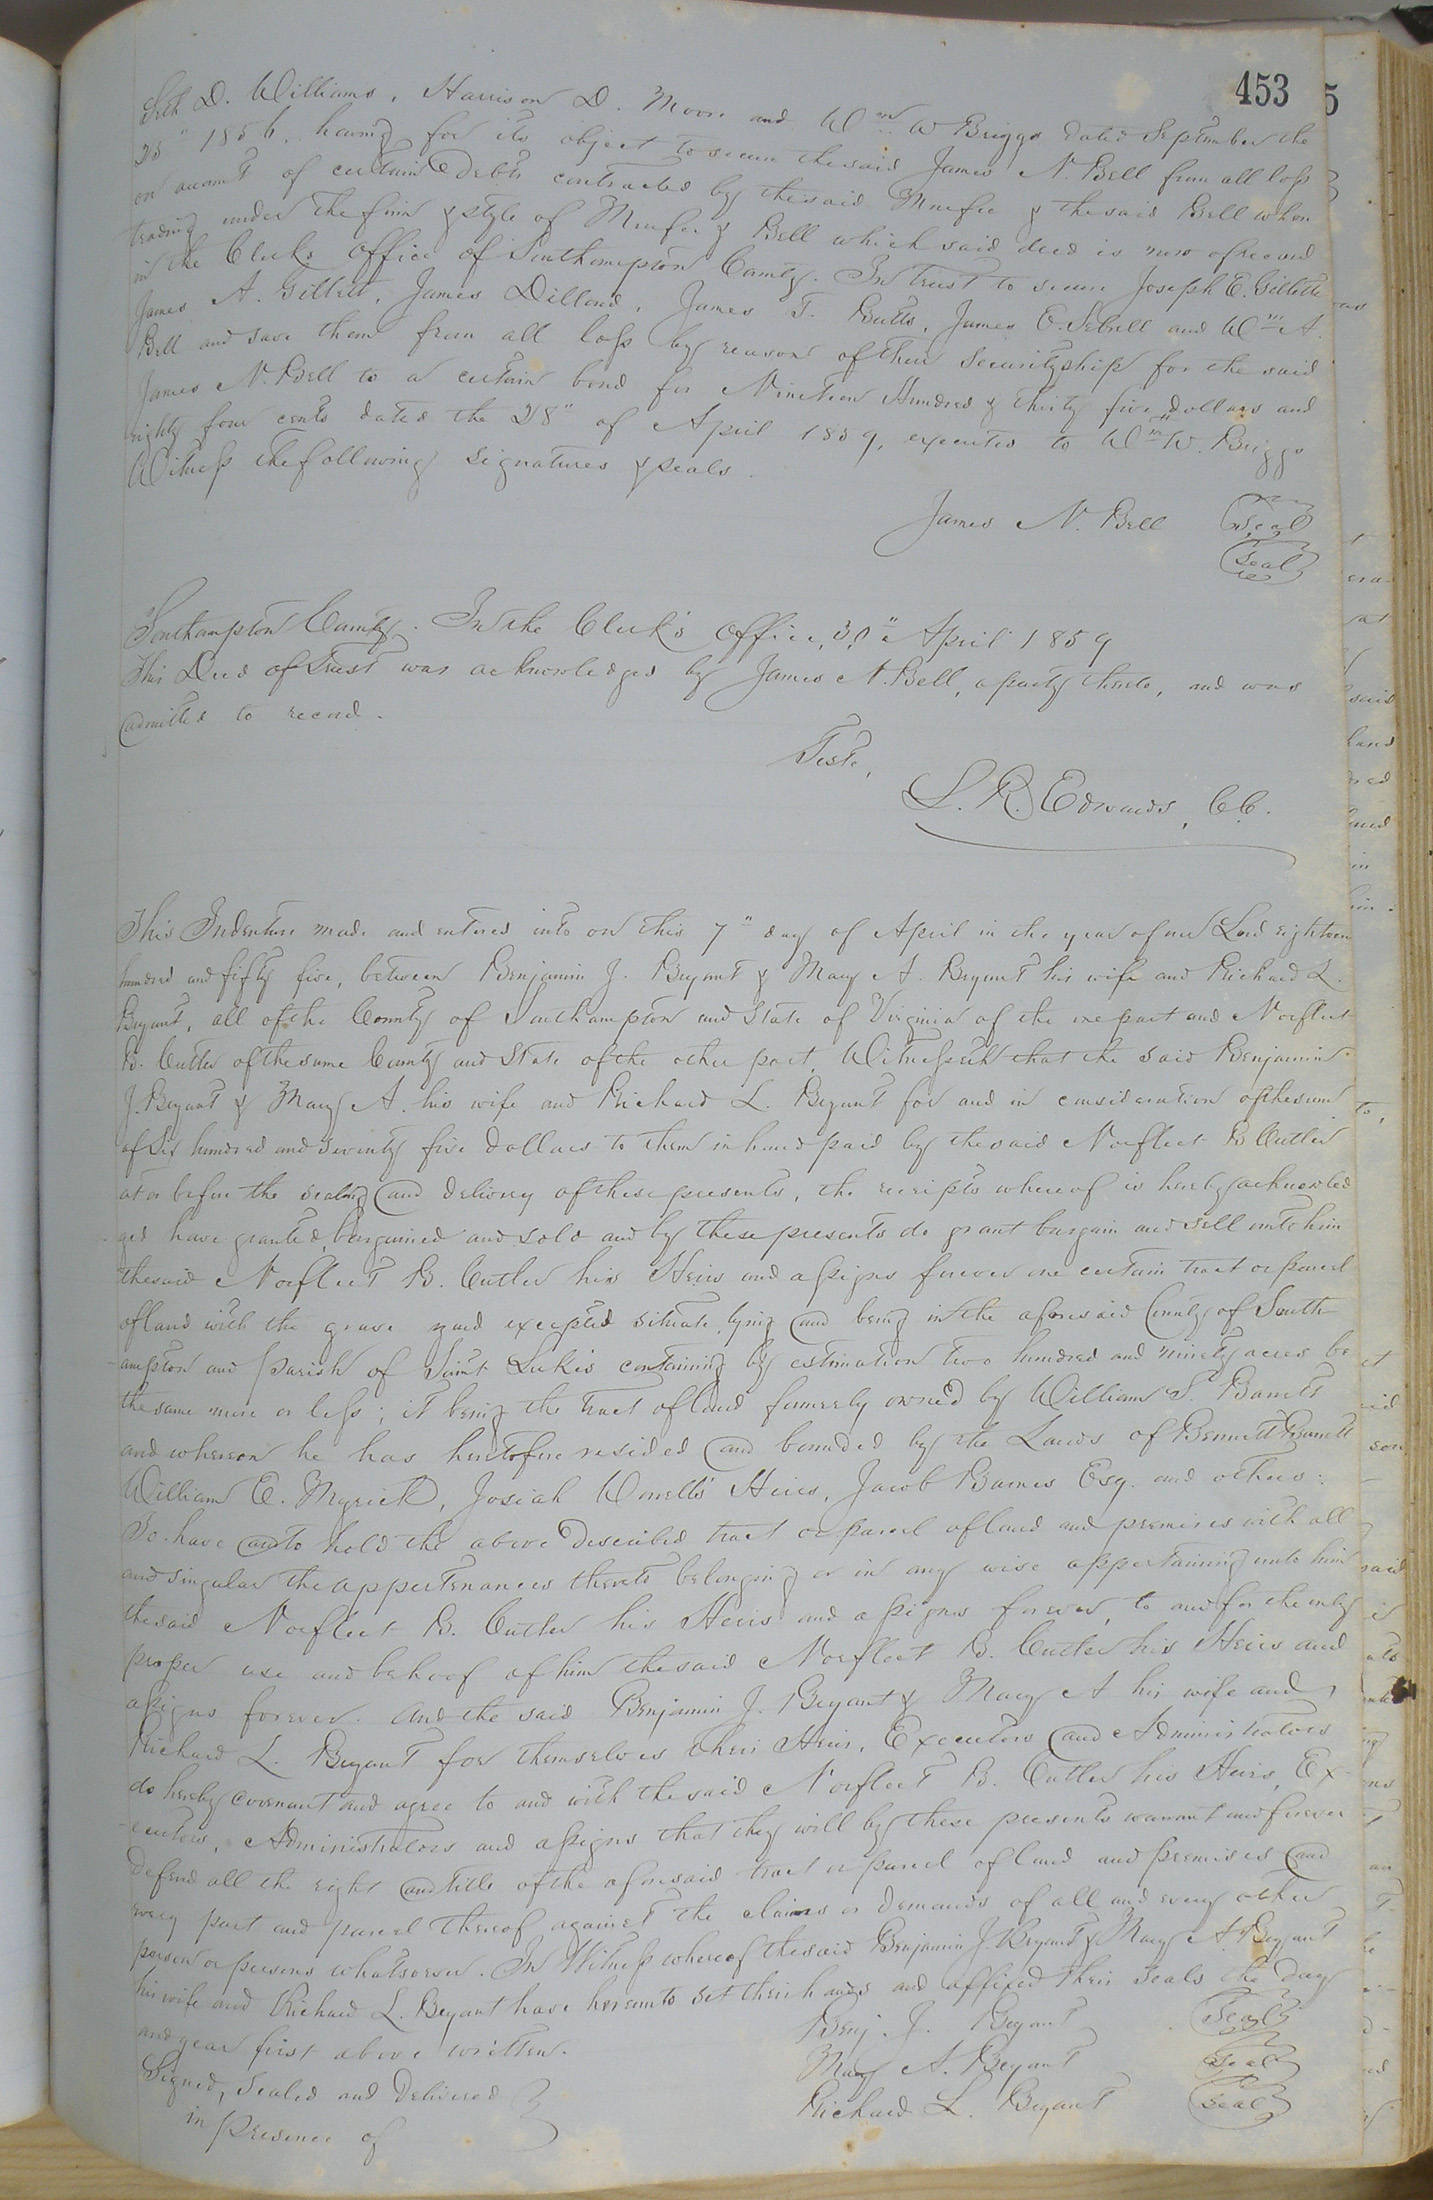 453
Seth D. Williams, Harrison D. Moore and Wm W Briggs dated September the
25" 1856, having for its object to secure the said James N. Bell from all loss
on account of certain debts contracted by the said Murfee & the said Bell when
trading under the firm & style of Murfee & Bell which said deed is now of record
in the Clerks Office of Southampton County. In trust to secure Joseph E. Gillette
James A. Gillett, James Dillard, James T. Butts, James E. Sebrell and Wm A.
Bell and save them from all loss by reason of their securityship for the said
James N. Bell to a certain bond for Nineteen Hundred & thirty five dollars and
eighty four cents dated the 28" of April 1859, executed to Wm W. Briggs
Witness the following signatures & seals.
James N. Bell Seal
Seal
Southampton County. In the Clerk's Office, 30" April 1859
This Deed of Trust was acknowledged by James N. Bell, a party thereto, and was
admitted to record.
Teste,
L. R. Edwards, C.C.
This Indenture made and entered into on this 7" day of April in the year of our Lord eighteen
hundred and fifty five, between Benjamin J. Bryant & Mary A. Bryant his wife and Richard L.
Bryant, all of the County of Southampton and State of Virginia of the one part and Norfleet
B. Cutler of the same County and State of the other part, Witnesseth that the said Benjamin
J. Bryant & Mary A. his wife and Richard L. Bryant for and in consideration of the sum
of Six hundred and seventy five dollars to them in hand paid by the said Norfleet B Cutler
at or before the sealing and delivery of these presents, the receipts whereof is hereby acknowled
ged have granted, bargained and sold and by these presents do grant bargain and sell unto him
the said Norfleet B. Cutler his Heirs and assigns forever one certain tract or parcel
of land with the grave yard excepted situate, lying and being in the aforesaid County of South
ampton and parish of Saint Luke's containing by estimation two hundred and ninety acres be
the same more or less; it being the tract of land formerly owned by William S. Barrett
and whereon he has heretofore resided and bounded by the Lands of Bennett Barrett
William E. Myrick, Josiah Worrells' Heirs, Jacob Barnes Esq. and others:
To have and to hold the above described tract or parcel of land and premises with all
and singular the appertenances thereto belonging or in any wise appertaining unto him
the said Norfleet B. Cutler his Heirs and assigns forever, to and for the only
proper use and behoof of him the said Norfleet B. Cutler his Heirs and
assigns forever. And the said Benjamin J. Bryant & Mary A his wife and
Richard L. Bryant for themselves their Heirs, Executors and Administrators
do hereby covenant and agree to and with the said Norfleet B. Cutler his Heirs, Ex-
-ecutors, Administrators and assigns that they will by these presents warrant and forever
defend all the right and title of the aforesaid tract or parcel of land and premises and
every part and parcel thereof against the claims or demands of all and every other
person or persons whatsoever. In Witness whereof the said Benjamin J. Bryant & Mary A. Bryant
his wife and Richard L. Bryant have hereunto set their hands and affixed their seals the day
and year first above written.
Benj. J. Bryant Seal
Signed, Sealed and Delivered
Mary A. Bryant Seal
in presence of
Richard L. Bryant Seal